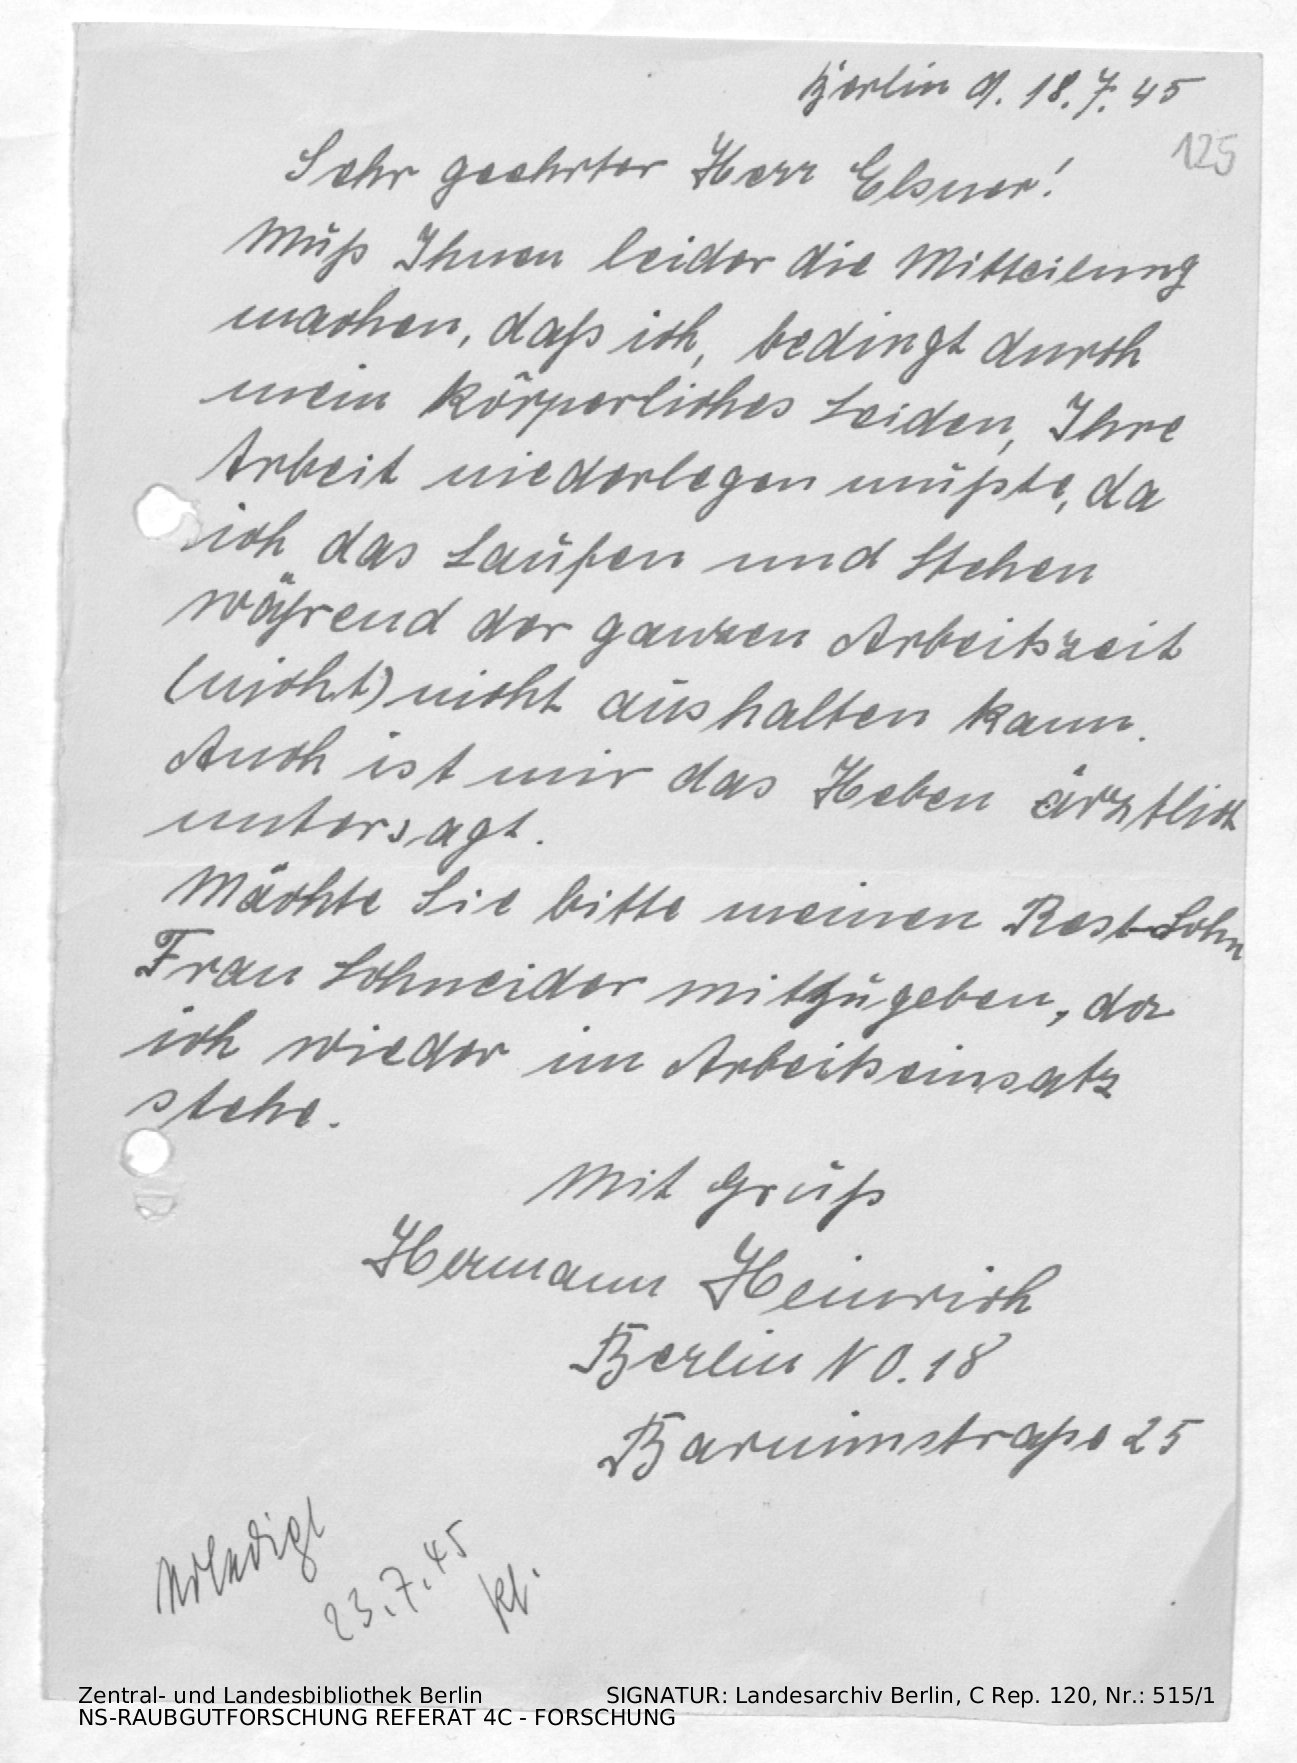 Berlin d. 18. 7. 45
125
Sehr geehrter Herr Elsner!
Muß Ihnen leider die Mitteilung
machen, daß ich, bedingt durch
mein körperliches Leiden, Ihre
Arbeit niederlegen mußte, da
ich das Laufen und Stehen
während der ganzen Arbeitszeit
(nicht) nicht aushalten kann.
Auch ist mir das Heben ärztlich
untersagt.
Möchte Sie bitte meinen Rest-Lohn
Frau Schneider mitzugeben, da
ich wieder im Arbeitseinsatz
stehe.
Mit Gruß
Hermann Heinrich
Berlin NO. 18
Barnimstraße 25
Erledigt
23.7.45
Kl.
Zentral- und Landesbibliothek Berlin SIGNATUR: Landesarchiv Berlin, C Rep. 120, Nr.: 515/1
NS-RAUBGUTFORSCHUNG REFERAT 4C - FORSCHUNG